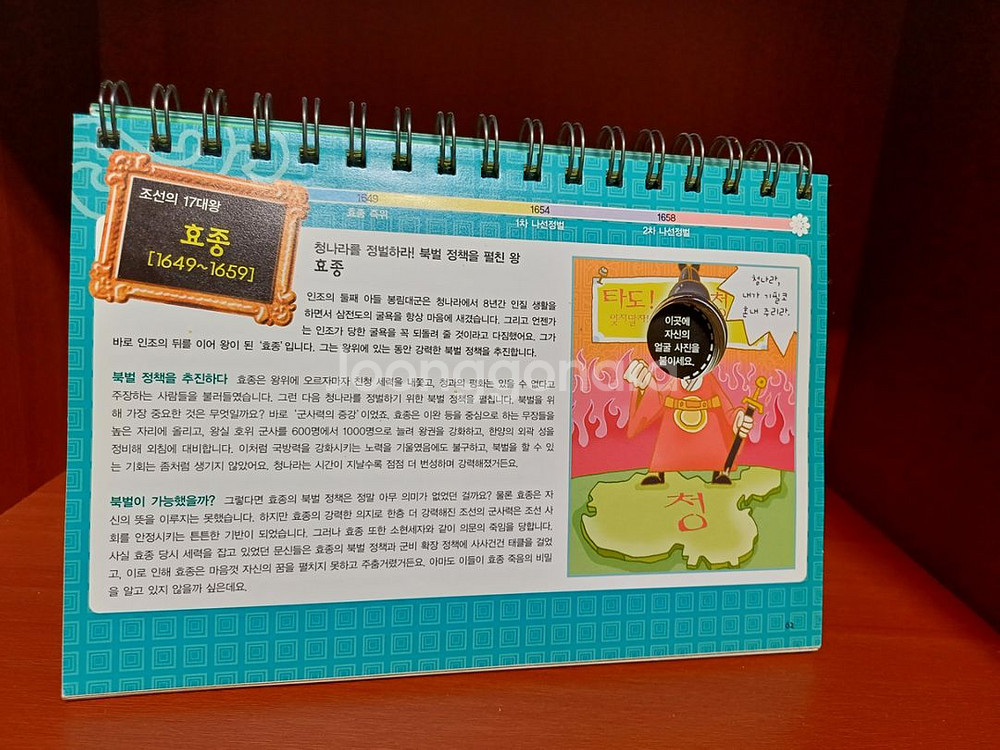 조선의 17대왕
효종
[1649~1659]
1649
효종 즉위
1654
1차 나선정벌
1658
2차 나선정벌
청나라를 정벌하라! 북벌 정책을 펼친 왕
효종
인조의 둘째 아들 봉림대군은 청나라에서 8년간 인질 생활을
하면서 삼전도의 굴욕을 항상 마음에 새겼습니다. 그리고 언젠가
는 인조가 당한 굴욕을 꼭 되돌려 줄 것이라고 다짐했어요. 그가
바로 인조의 뒤를 이어 왕이 된 '효종'입니다. 그는 왕위에 있는 동안 강력한 북벌 정책을 추진합니다.
북벌 정책을 추진하다 효종은 왕위에 오르자마자 친청 세력을 내쫓고, 청과의 평화는 있을 수 없다고
주장하는 사람들을 불러들였습니다. 그런 다음 청나라를 정벌하기 위한 북벌 정책을 펼칩니다. 북벌을 위
해 가장 중요한 것은 무엇일까요? 바로 '군사력의 증강'이었죠. 효종은 이완 등을 중심으로 하는 무장들을
높은 자리에 올리고, 왕실 호위 군사를 600명에서 1000명으로 늘려 왕권을 강화하고, 한양의 외곽 성을
정비해 외침에 대비합니다. 이처럼 국방력을 강화시키는 노력을 기울였음에도 불구하고, 북벌을 할 수 있
는 기회는 좀처럼 생기지 않았어요. 청나라는 시간이 지날수록 점점 더 번성하며 강력해졌거든요.
북벌이 가능했을까? 그렇다면 효종의 북벌 정책은 정말 아무 의미가 없었던 걸까요? 물론 효종은 자
신의 뜻을 이루지는 못했습니다. 하지만 효종의 강력한 의지로 한층 더 강력해진 조선의 군사력은 조선 사
회를 안정시키는 튼튼한 기반이 되었습니다. 그러나 효종 또한 소현세자와 같이 의문의 죽임을 당합니다.
사실 효종 당시 세력을 잡고 있었던 문신들은 효종의 북벌 정책과 군비 확장 정책에 사사건건 태클을 걸었
고, 이로 인해 효종은 마음껏 자신의 꿈을 펼치지 못하고 주춤거렸거든요. 아마도 이들이 효종 죽음의 비밀
을 알고 있지 않을까 싶은데요.
타도! 청
잊지말자
청나라,
내가 기필코
혼내 주리라.
이곳에
자신의
얼굴 사진을
붙이세요.
청
62
joonggonara